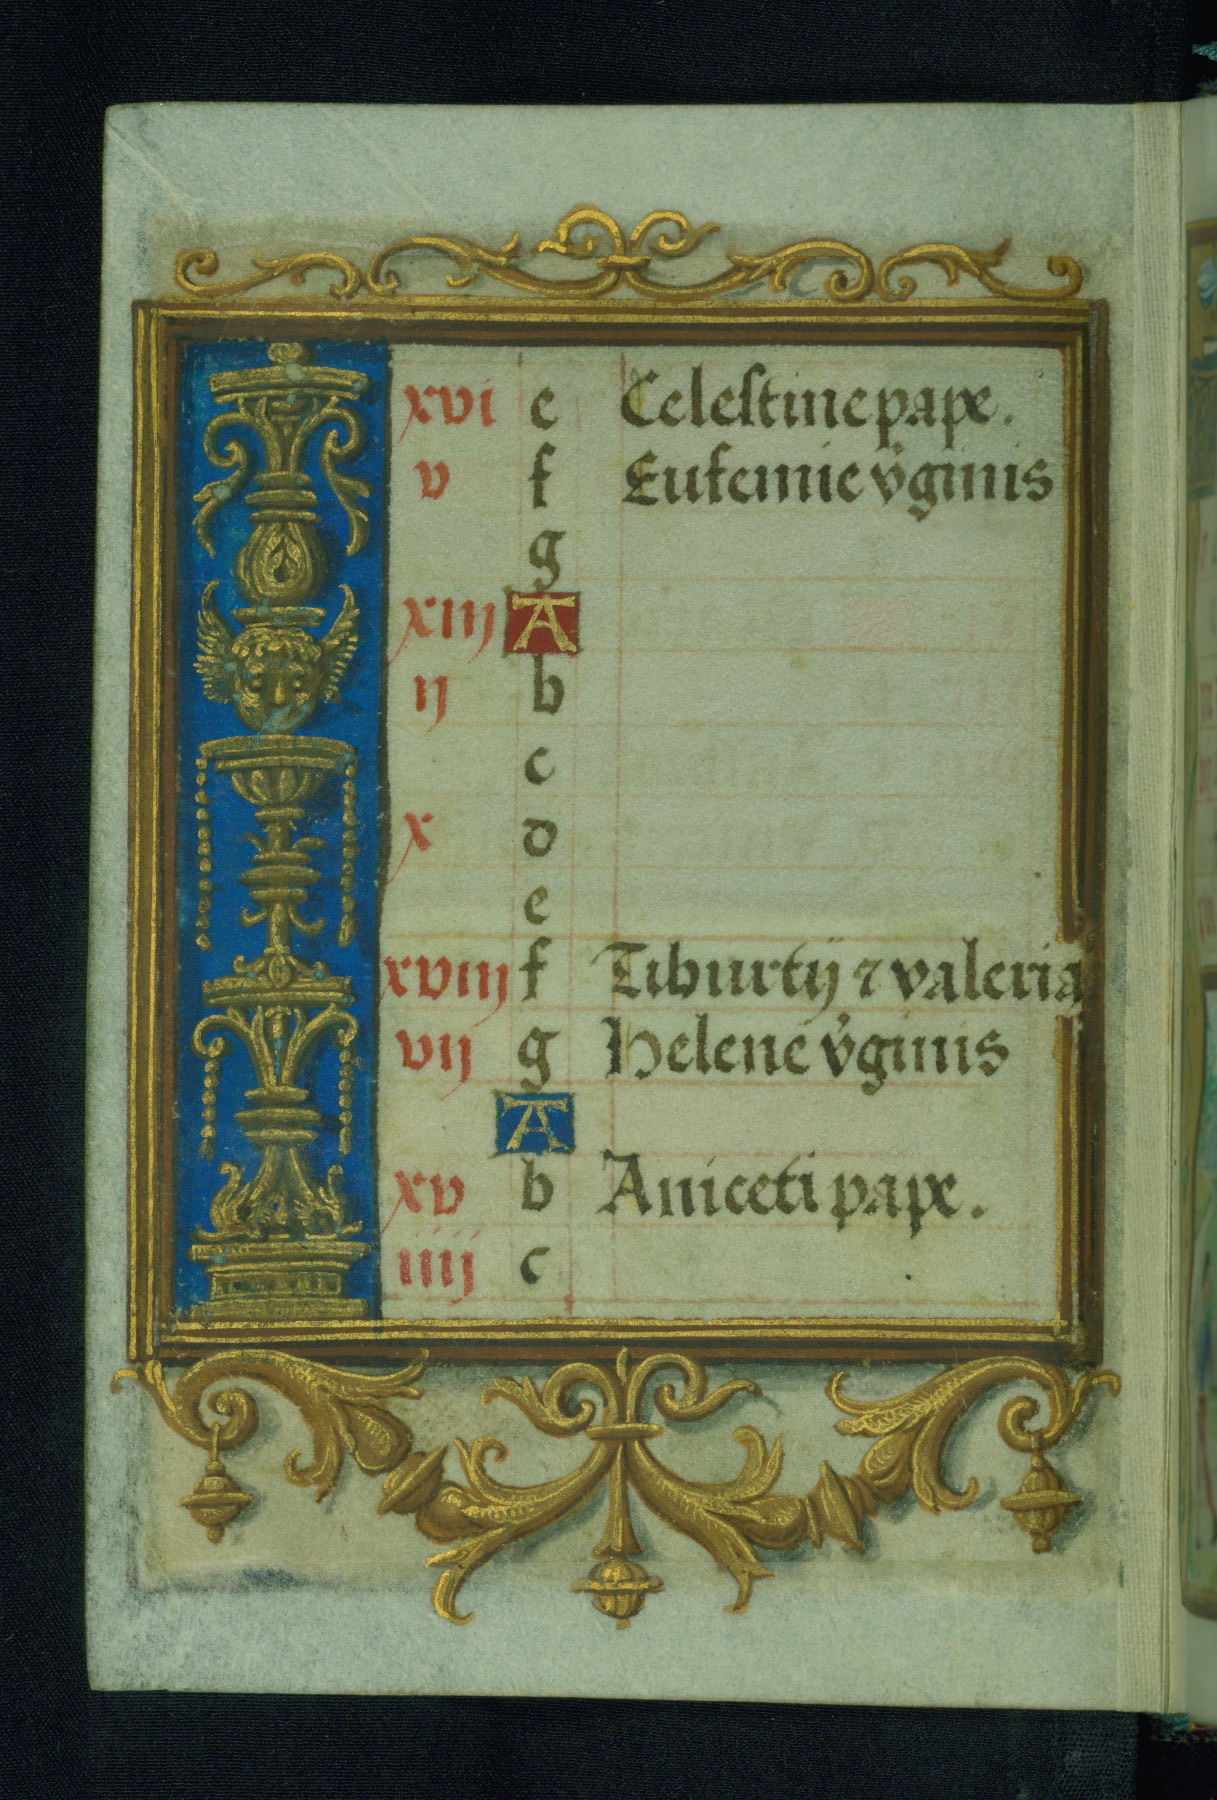 xvi e Celestine pape.
v f Eufemie v̉ginis
g
xiij A
ij b
c
x d
e
xviij f Tiburtij ⁊ valeria
vij g Helene v̉ginis
A
xv b Aniceti pape.
iiij c